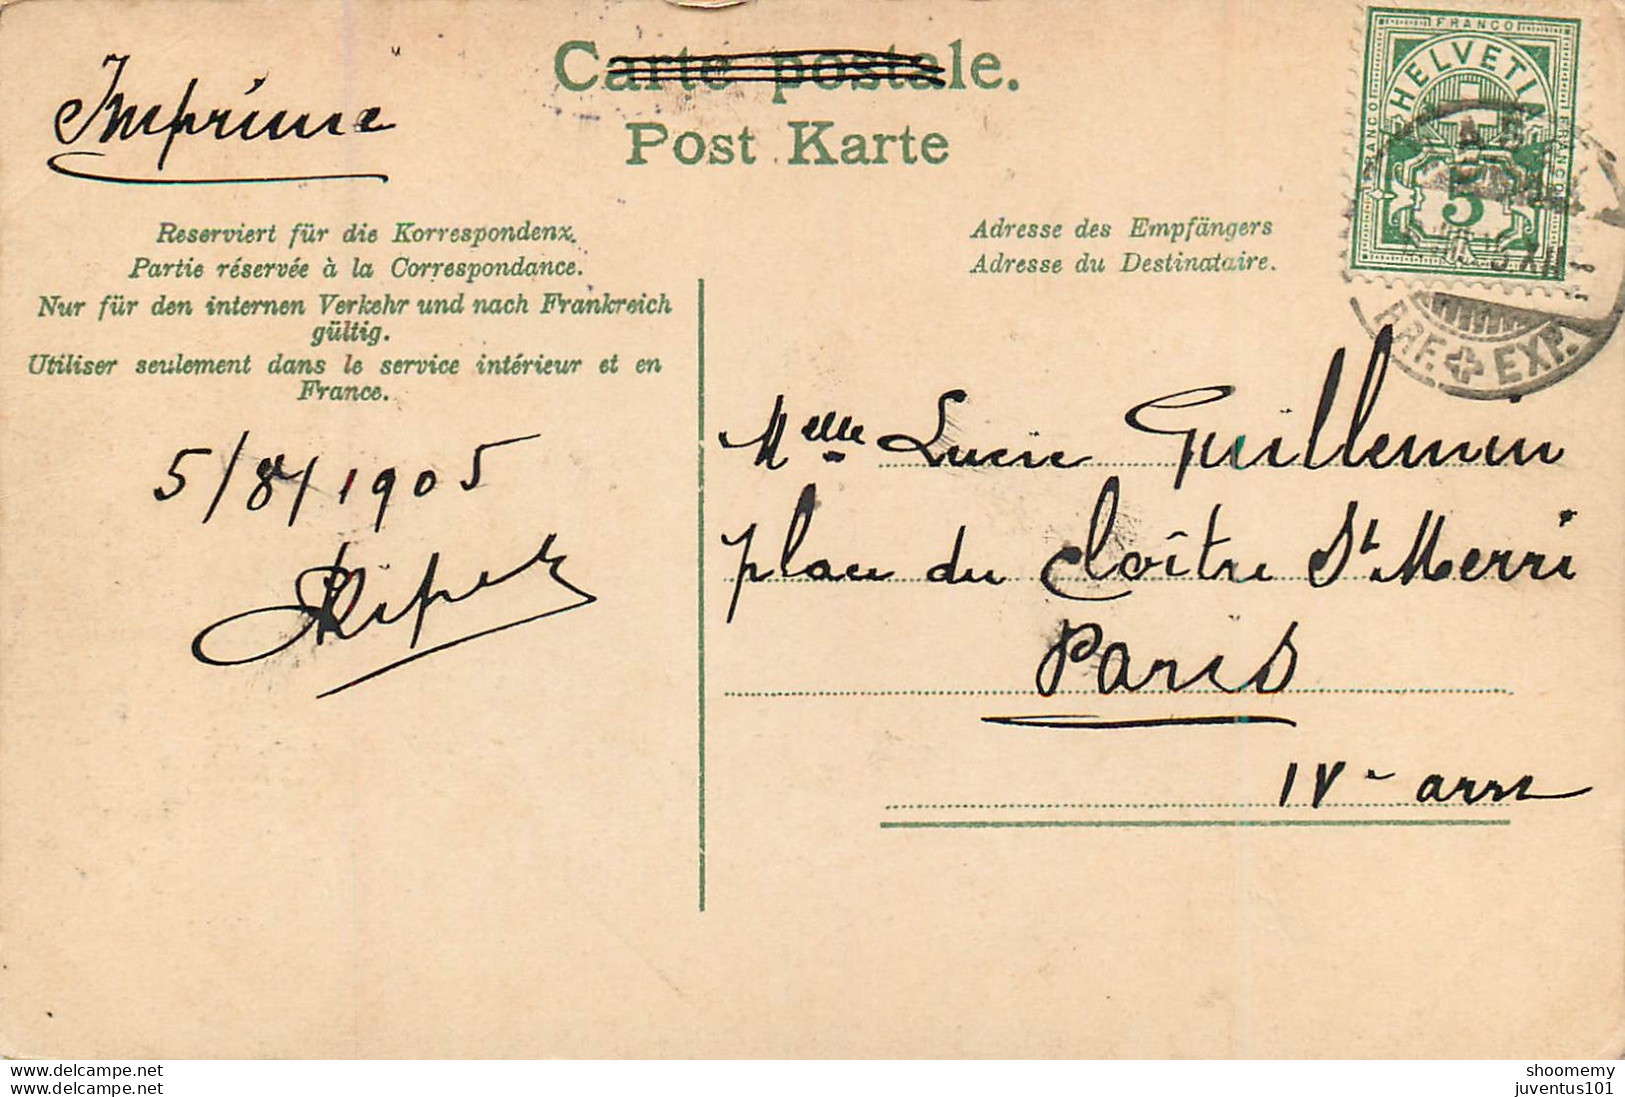 Imprimé
Carte postale.
Post Karte
FRANCO
HELVETIA
FRANCO
FRANCO
5
BRF. EXP.
Reserviert für die Korrespondenz.
Partie réservée à la Correspondance.
Nur für den internen Verkehr und nach Frankreich
gültig.
Utiliser seulement dans le service intérieur et en
France.
Adresse des Empfängers
Adresse du Destinataire.
5/8/1905
Melle Lucie Guillemin
place du Cloître St. Merri
Paris
IVe arrt
www.delcampe.net
www.delcampe.net
shoomemy
juventus101